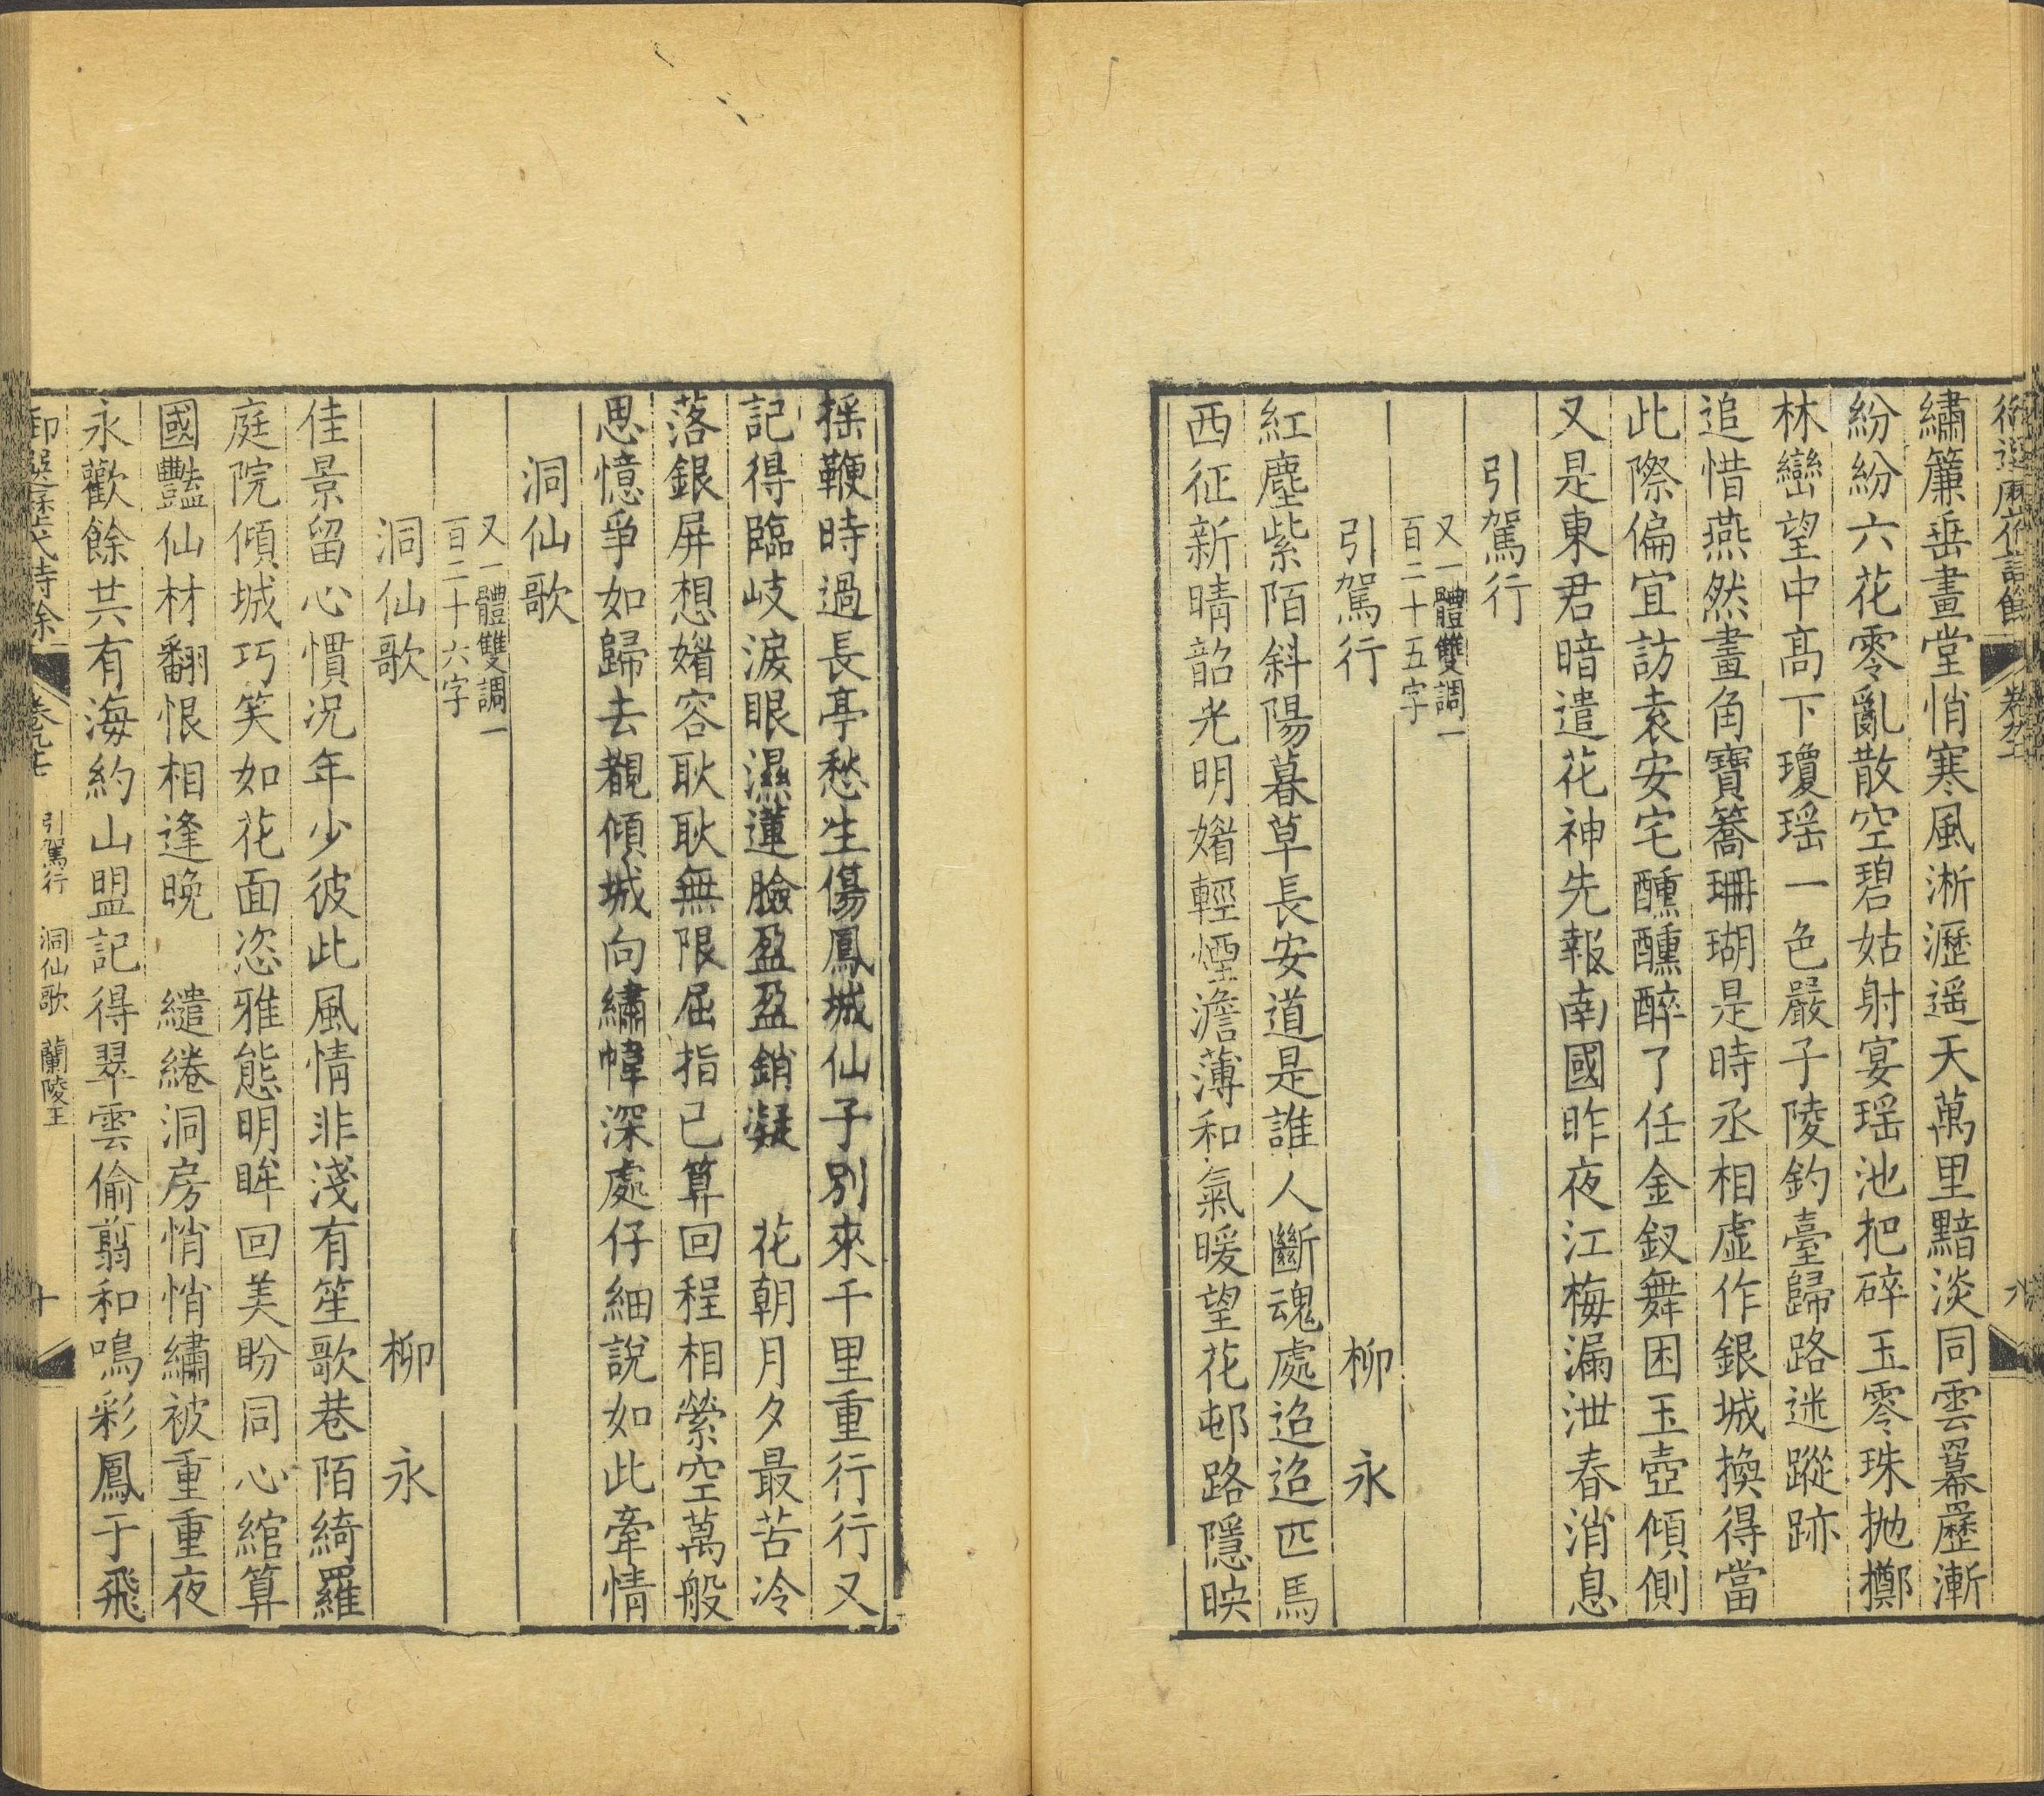 繡簾垂畫堂悄寒風淅瀝遥天萬里黯淡同雲冪歷漸
紛紛六花零亂散空碧姑射宴瑶池把碎玉零珠拋擲
林巒望中高下瓊瑶一色嚴子陵釣臺歸路迷蹤跡
追惜燕然畫角寶簥珊瑚是時丞相虛作銀城換得當
此際偏宜訪袁安宅醺醺醉了任金釵舞困玉壺傾側
又是東君暗遣花神先報南國昨夜江梅漏泄春消息
引駕行
又一體雙調一
百二十五字
引駕行 柳永
紅塵紫陌斜陽暮草長安道是誰人斷魂處迢迢匹馬
西征新晴韶光明媚輕煙澹薄和氣暖望花邨路隱映
搖鞭時過長亭愁生傷鳳城仙子別來千里重行行又
記得臨岐淚眼濕蓮臉盈盈銷凝 花朝月夕最苦冷
落銀屏想媚容耿耿無限屈指已算回程相縈空萬般
思憶爭如歸去覩傾城向繡幃深處仔細說如此牽情
洞仙歌
又一體雙調一
百二十六字
洞仙歌 柳永
佳景留心慣况年少彼此風情非淺有笙歌巷陌綺羅
庭院傾城巧笑如花面恣雅態明眸回美盼同心綰算
國豔仙材翻恨相逢晚 繾綣洞房悄悄繡被重重夜
永歡餘共有海約山盟記得翠雲偷翦和鳴彩鳳于飛
引駕行 洞仙歌 蘭陵王
十